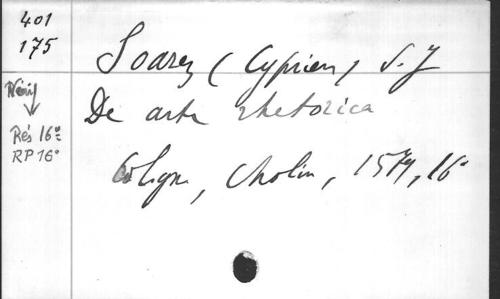 401
175
Soarez (Cyprien) S.J
De arte rhetorica
Rés 16°
RP 16°
Cologne, Cholin, 16°